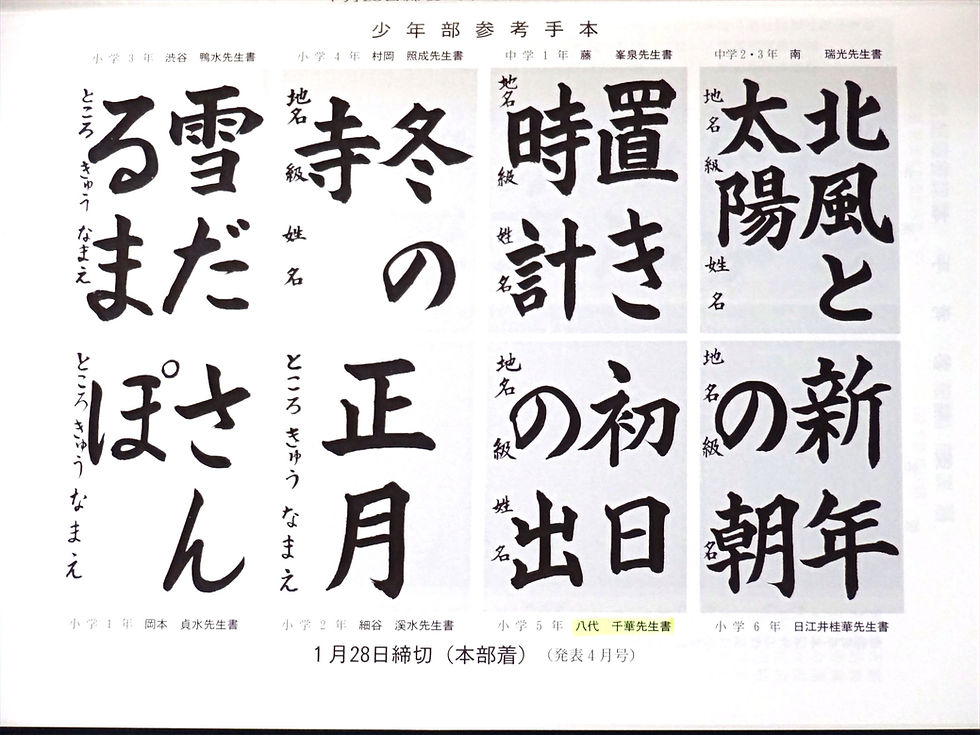 少年部参考手本
中学2・3年 南 瑞光先生書
北風と
太陽
地名 級 姓名
中学1年 藤 峯泉先生書
置き
時計
地名 級 姓名
小学4年 村岡 照成先生書
冬の
寺
地名 級 姓名
小学3年 渋谷 鴨水先生書
雪だ
るま
ところ きゅう なまえ
新年
の朝
地名 級 名
小学6年 日江井桂華先生書
初日
の出
地名 級 姓名
小学5年 八代 千華先生書
正月
ところ きゅう なまえ
小学2年 細谷 溪水先生書
さん
ぽ
ところ きゅう なまえ
小学1年 岡本 貞水先生書
1月28日締切（本部着）（発表4月号）